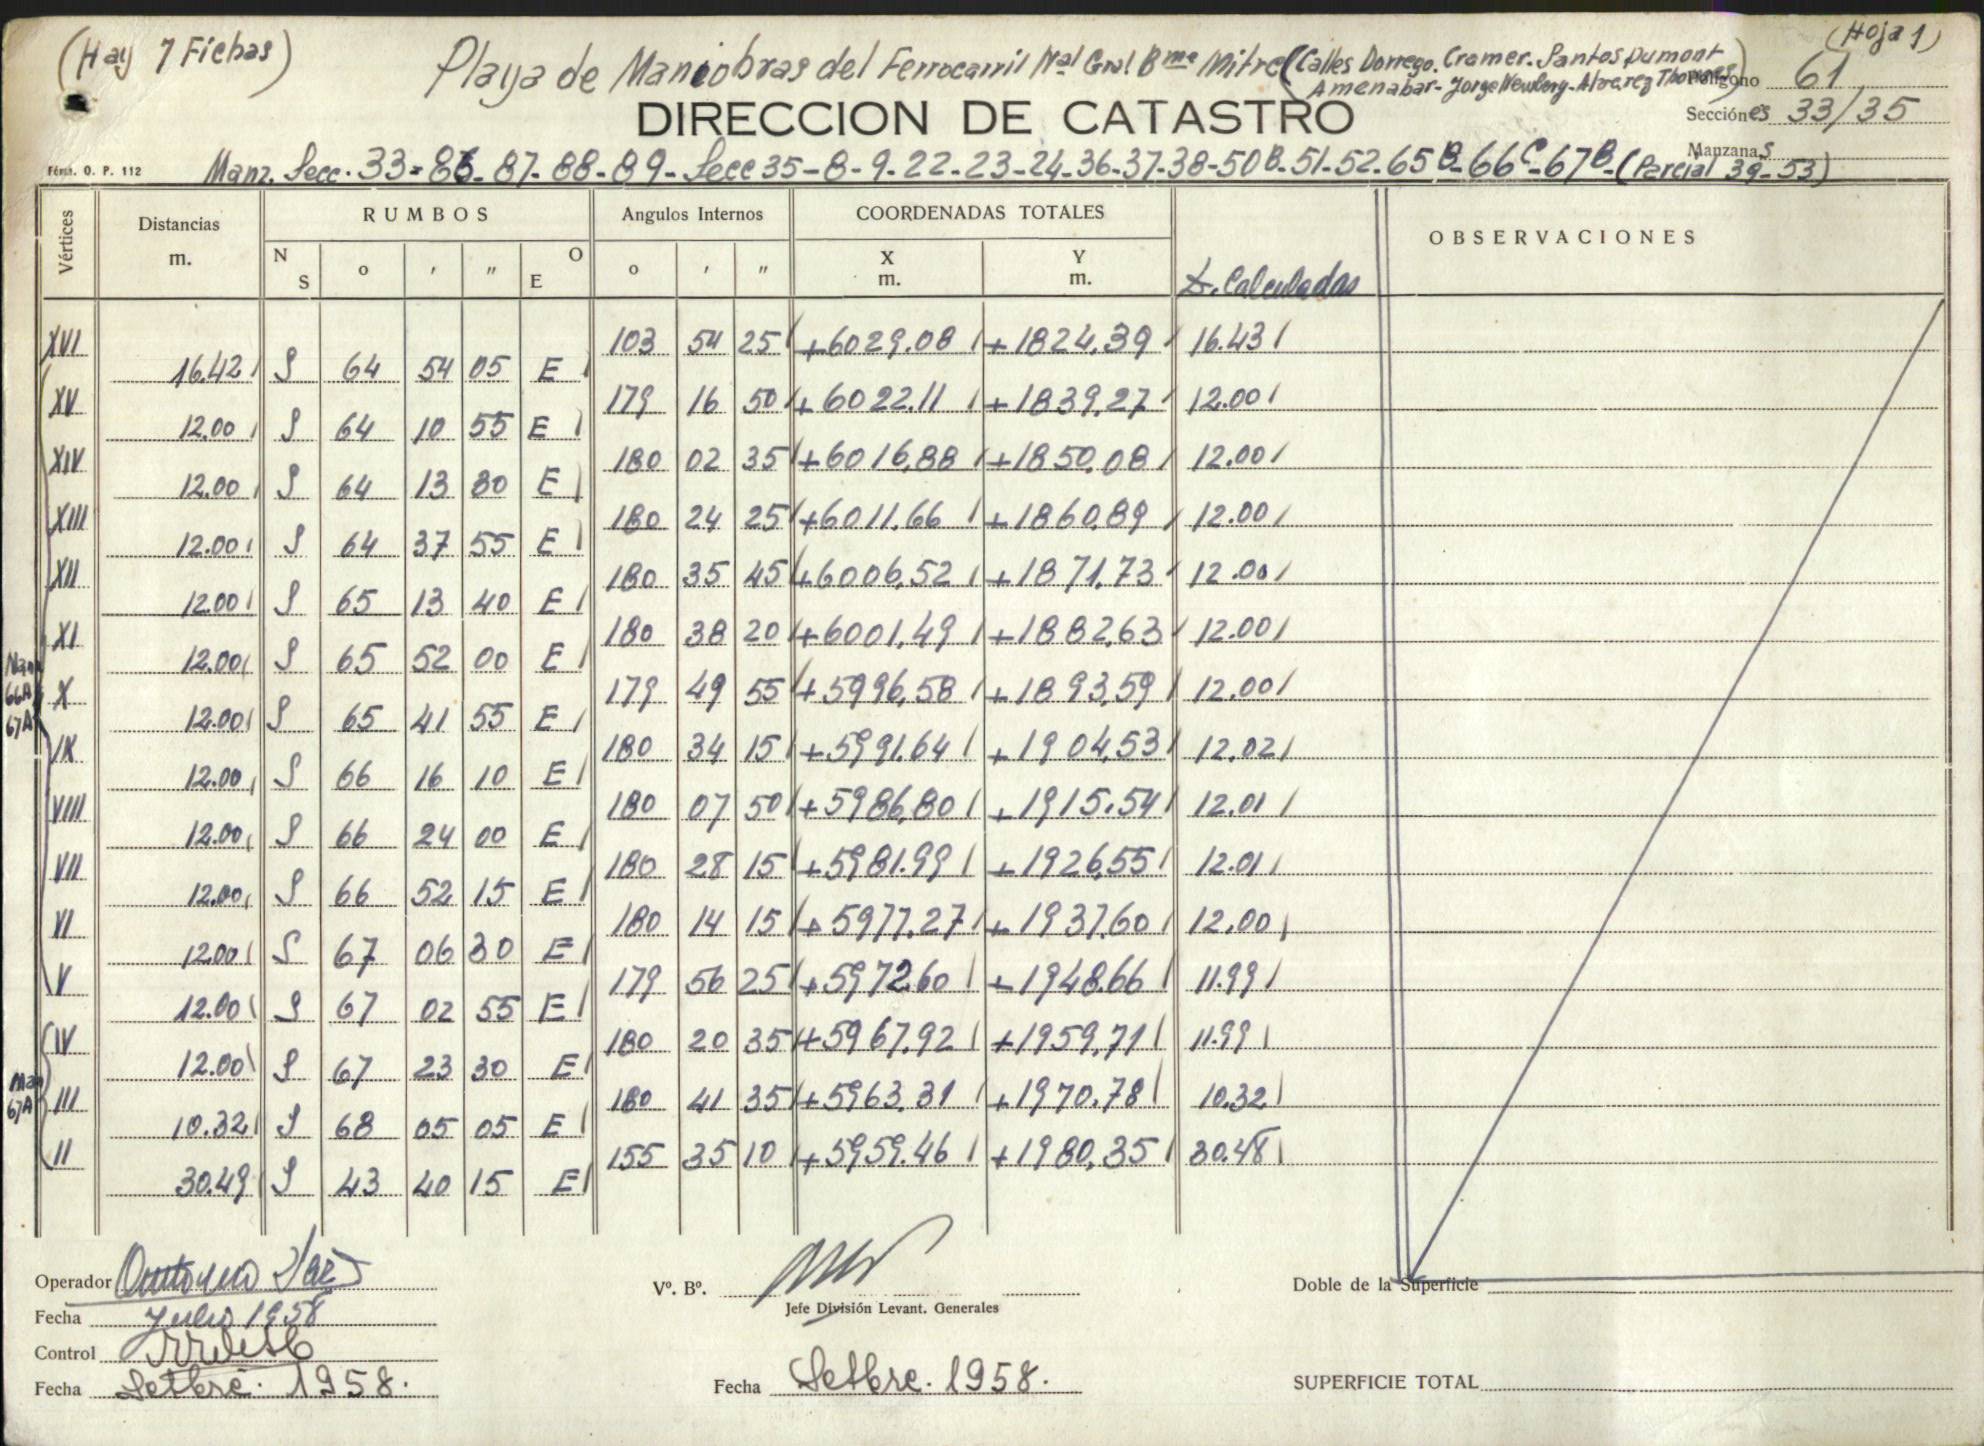 (Hay 7 Fichas)
(Hoja 1)
Playa de Maniobras del Ferrocarril Nal Gral Bme Mitre (Calles Dorrego. Cramer. Santos Dumont
Amenabar - Jorge Newbery - Alvarez Thomas)
Polígono 61
DIRECCION DE CATASTRO
Secciónes 33/35
Manzanas
Fórm. O. P. 112
Manz. Secc. 33 = 86 - 87 - 88 - 89 - Secc 35 - 8 - 9 - 22 - 23 - 24 - 36 - 37 - 38 - 50B - 51 - 52 - 65B - 66C - 67B - (Parcial 39 - 53)
Vértices Distancias m. RUMBOS Angulos Internos COORDENADAS TOTALES OBSERVACIONES
N S o ' " O E o ' " X m. Y m. D. Calculadas
XVI 103 54 25 +6029.08 +1824.39 16.43
16.42 S 64 54 05 E
XV 179 16 50 +6022.11 +1839.27 12.00
12.00 S 64 10 55 E
XIV 180 02 35 +6016.88 +1850.08 12.00
12.00 S 64 13 30 E
XIII 180 24 25 +6011.66 +1860.89 12.00
12.00 S 64 37 55 E
XII 180 35 45 +6006.52 +1871.73 12.00
12.00 S 65 13 40 E
XI 180 38 20 +6001.49 +1882.63 12.00
12.00 S 65 52 00 E
Man
66A
67A
X 179 49 55 +5996.58 +1893.59 12.00
12.00 S 65 41 55 E
IX 180 34 15 +5991.64 +1904.53 12.02
12.00 S 66 16 10 E
VIII 180 07 50 +5986.80 +1915.54 12.01
12.00 S 66 24 00 E
VII 180 28 15 +5981.99 +1926.55 12.01
12.00 S 66 52 15 E
VI 180 14 15 +5977.27 +1937.60 12.00
12.00 S 67 06 30 E
V 179 56 25 +5972.60 +1948.66 11.99
12.00 S 67 02 55 E
IV 180 20 35 +5967.92 +1959.71 11.99
12.00 S 67 23 30 E
Man
67A
III 180 41 35 +5963.31 +1970.78 10.32
10.32 S 68 05 05 E
II 155 35 10 +5959.46 +1980.35 30.48
30.49 S 43 40 15 E
Operador
Vº. Bº.
Doble de la Superficie
Jefe División Levant. Generales
Fecha Julio 1958
Control
Fecha Setbre. 1958.
Fecha Setbre. 1958.
SUPERFICIE TOTAL